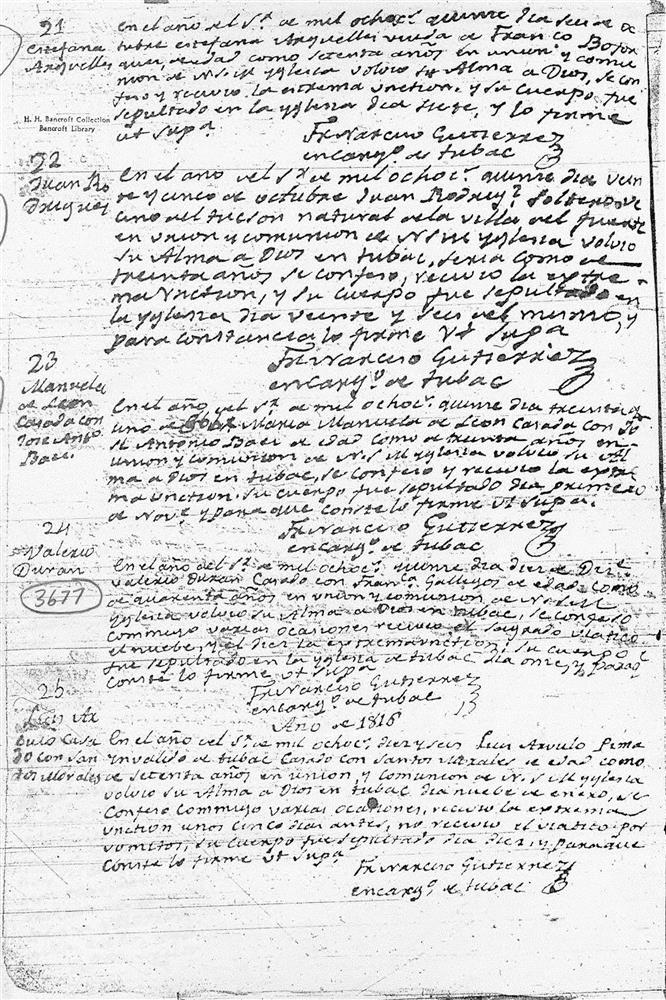 21
Estefana
Arquelles
En el año del Sr. de mil ochoc. quinse dia seis de oc
tubre estefana Arquelles viuda de Franco Bojor
ques, de edad como setenta años en union y comu
nion de N. S. M. Yglesia volvio su Alma a Dios, se con
feso y recivio la extrema unction, y su cuerpo fue
sepultado en la yglesia dia siete, y lo firme
ut supa
H. H. Bancroft Collection
Bancroft Library
Fr Narciso Gutierrez
encargo. de tubac
22
Juan Ro
driguez
En el año del Sr. de mil ochoc. quinse dia vein
te y cinco de octubre Juan Rodrig. soltero ve
cino del tucson natural de la villa del fuerte
en union y comunion de N S M yglesia volvio
su Alma a Dios en tubac, seria como de
treinta años se confeso, recivio la extre
ma Vnction, y su cuerpo fue sepultado en
la yglesia dia veinte y seis del mismo, y
para constancia lo firme Vt supa
Fr Narciso Gutierrez
encargo. de tubac
23
Manuela
de Leon
Casada con
Jose Anto.
Baes.
En el año del Sr. de mil ochoc. quinse dia treinta y
uno de Maria Manuela de Leon Casada con Jo
se Antonio Baes de edad como de treinta años en
union y comunion de N. S. M Yglesia volvio su Al
ma a Dios en tubac, se confeso y recivio la extre
ma unction. su cuerpo fue sepultado dia primero
de Nove. y para que conste lo firme Vt supa.
Fr Narciso Gutierrez
encargo. de tubac
24
Valerio
Duran
3677
En el año del Sr. de mil ochoc. quinse dia diez de Dize.
Valerio Duran Casado con Franca. Gallegos de edad como
de quarenta años en union y comunion de N. S. M
Yglesia volvio su Alma a Dios en tubac, se confeso
commigo varias ocasiones recivio el sagrado viatico
el nueve, y el diez la extremaunction; su cuerpo
fue sepultado en la yglesia de tubac dia onse, y para q
conste lo firme Vt supa
Fr Narciso Gutierrez
encargo. de tubac
Año de 1816
25
Luis Ar
bulo Casa
do con San
tos Morales
En el año del Sr. de mil ochoc. diez y seis Luis Arvulo Pima
Ynvalido de tubac Casado con Santos Morales de edad como
de setenta años en union, y comunion de N. S. M Yglesia
volvio su Alma a Dios en tubac dia nueve de enero, se
confeso commigo varias ocasiones, recivio la extrema
unction unos cinco dias antes, no recivio el viatico por
vomitos, su cuerpo fue sepultado dia diez, y para que
conste lo firme Vt supa
Fr Narciso Gutierrez
encargo. de tubac